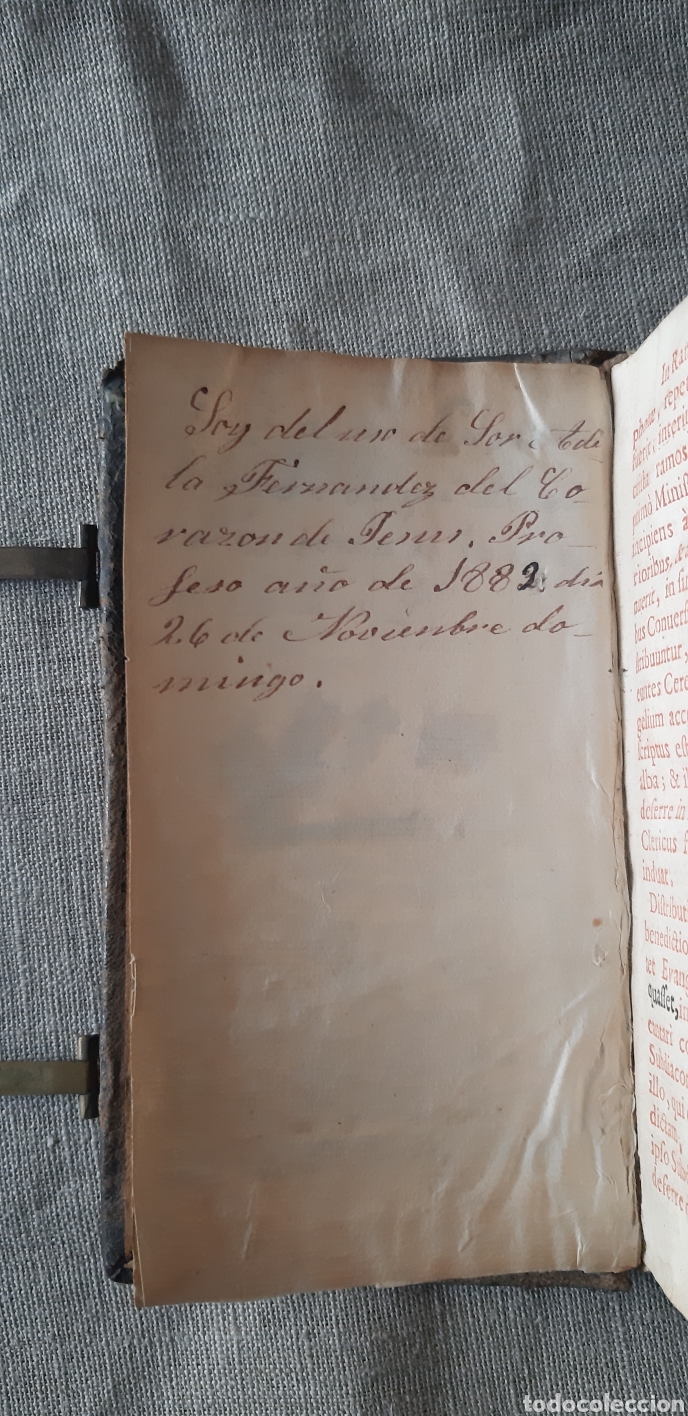 Soy del uso de Sor Ade
la Fernandez del Co-
razon de Jesus. Pro-
feso año de 1882. dia
26 de Novienbre do-
mingo.
In Ra
repe
interi
ramos
Minist
incipiens à
rioribus,
in
bus Conuers
tribuuntur,
euntes Cere
gelium acc
scriptus est
alba; & i
deferre in
Clericus f
induat.
Distribut
benedictio
tet Evang
quasset, in
cantari co
Subdiacon
illo, qui
dictam,
ipso Sub
deferre
todocoleccion